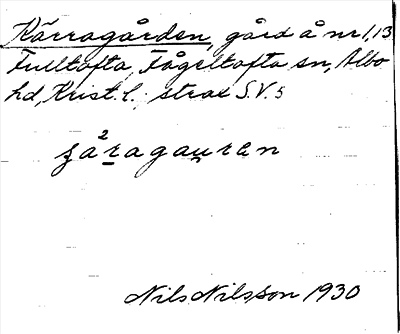 Kärragården, gård å nr 1, 13
Fulltofta, Fågeltofta sn, Albo
hd, Krist. l.; strax S.V. 5
ʒå²ragauren
Nils Nilsson 1930